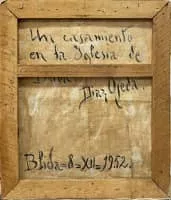 Un casamiento
en la Yglesia de
Diaz Ojeda.
Blida = 8 = XII = 1952.